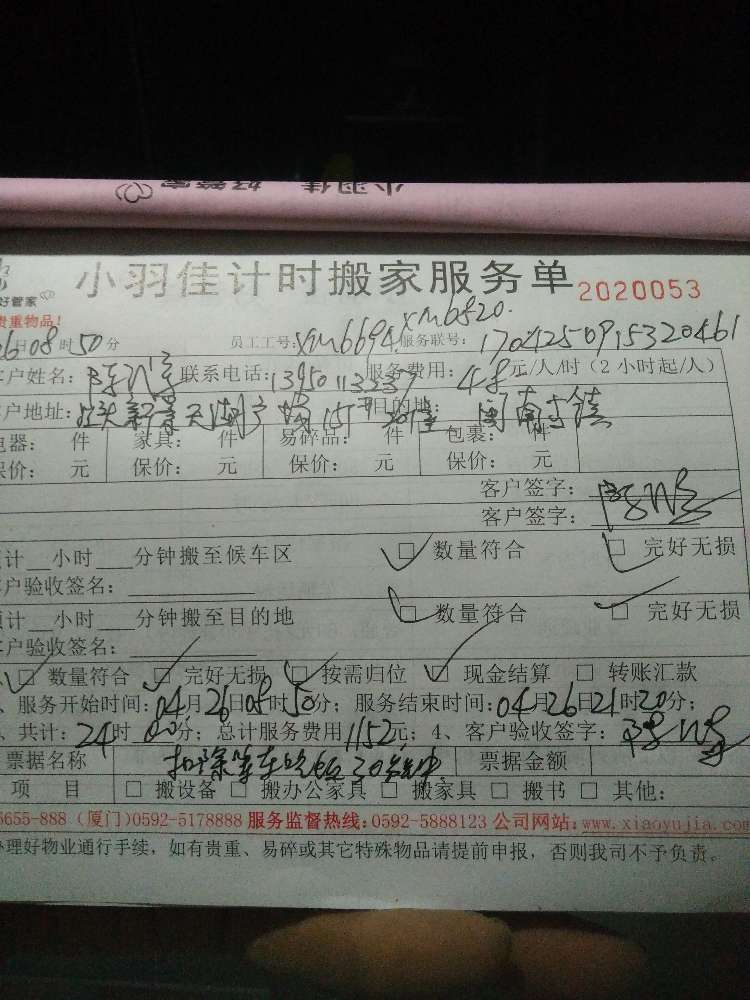 小羽佳 好管家
小羽佳计时搬家服务单 2020053
好管家
贵重物品！
XM6820.
26日08时50分 员工工号：XM6694 服务联号：1704250915320461
客户姓名：陈 联系电话：13950113337 服务费用：48元/人/时（2小时起/人）
客户地址： 目的地： 闽南古镇
电器： 件 家具： 件 易碎品： 件 包裹： 件
保价： 元 保价： 元 保价： 元 保价： 元
客户签字：
客户签字：
预计 小时 分钟搬至候车区 □ 数量符合 □ 完好无损
客户验收签名：
预计 小时 分钟搬至目的地 □ 数量符合 □ 完好无损
客户验收签名：
□ 数量符合 □ 完好无损 □ 按需归位 □ 现金结算 □ 转账汇款
、服务开始时间：04月26日08时50分；服务结束时间：04月26日21时20分；
、共计：24时00分；总计服务费用1152元；4、客户验收签字：
票据名称 扣除等车吃饭30分钟 票据金额
项 目 □ 搬设备 □ 搬办公家具 □ 搬家具 □ 搬书 □ 其他：
5655-888 (厦门)0592-5178888 服务监督热线：0592-5888123 公司网站：www.xiaoyujia.com
办理好物业通行手续，如有贵重、易碎或其它特殊物品请提前申报，否则我司不予负责。